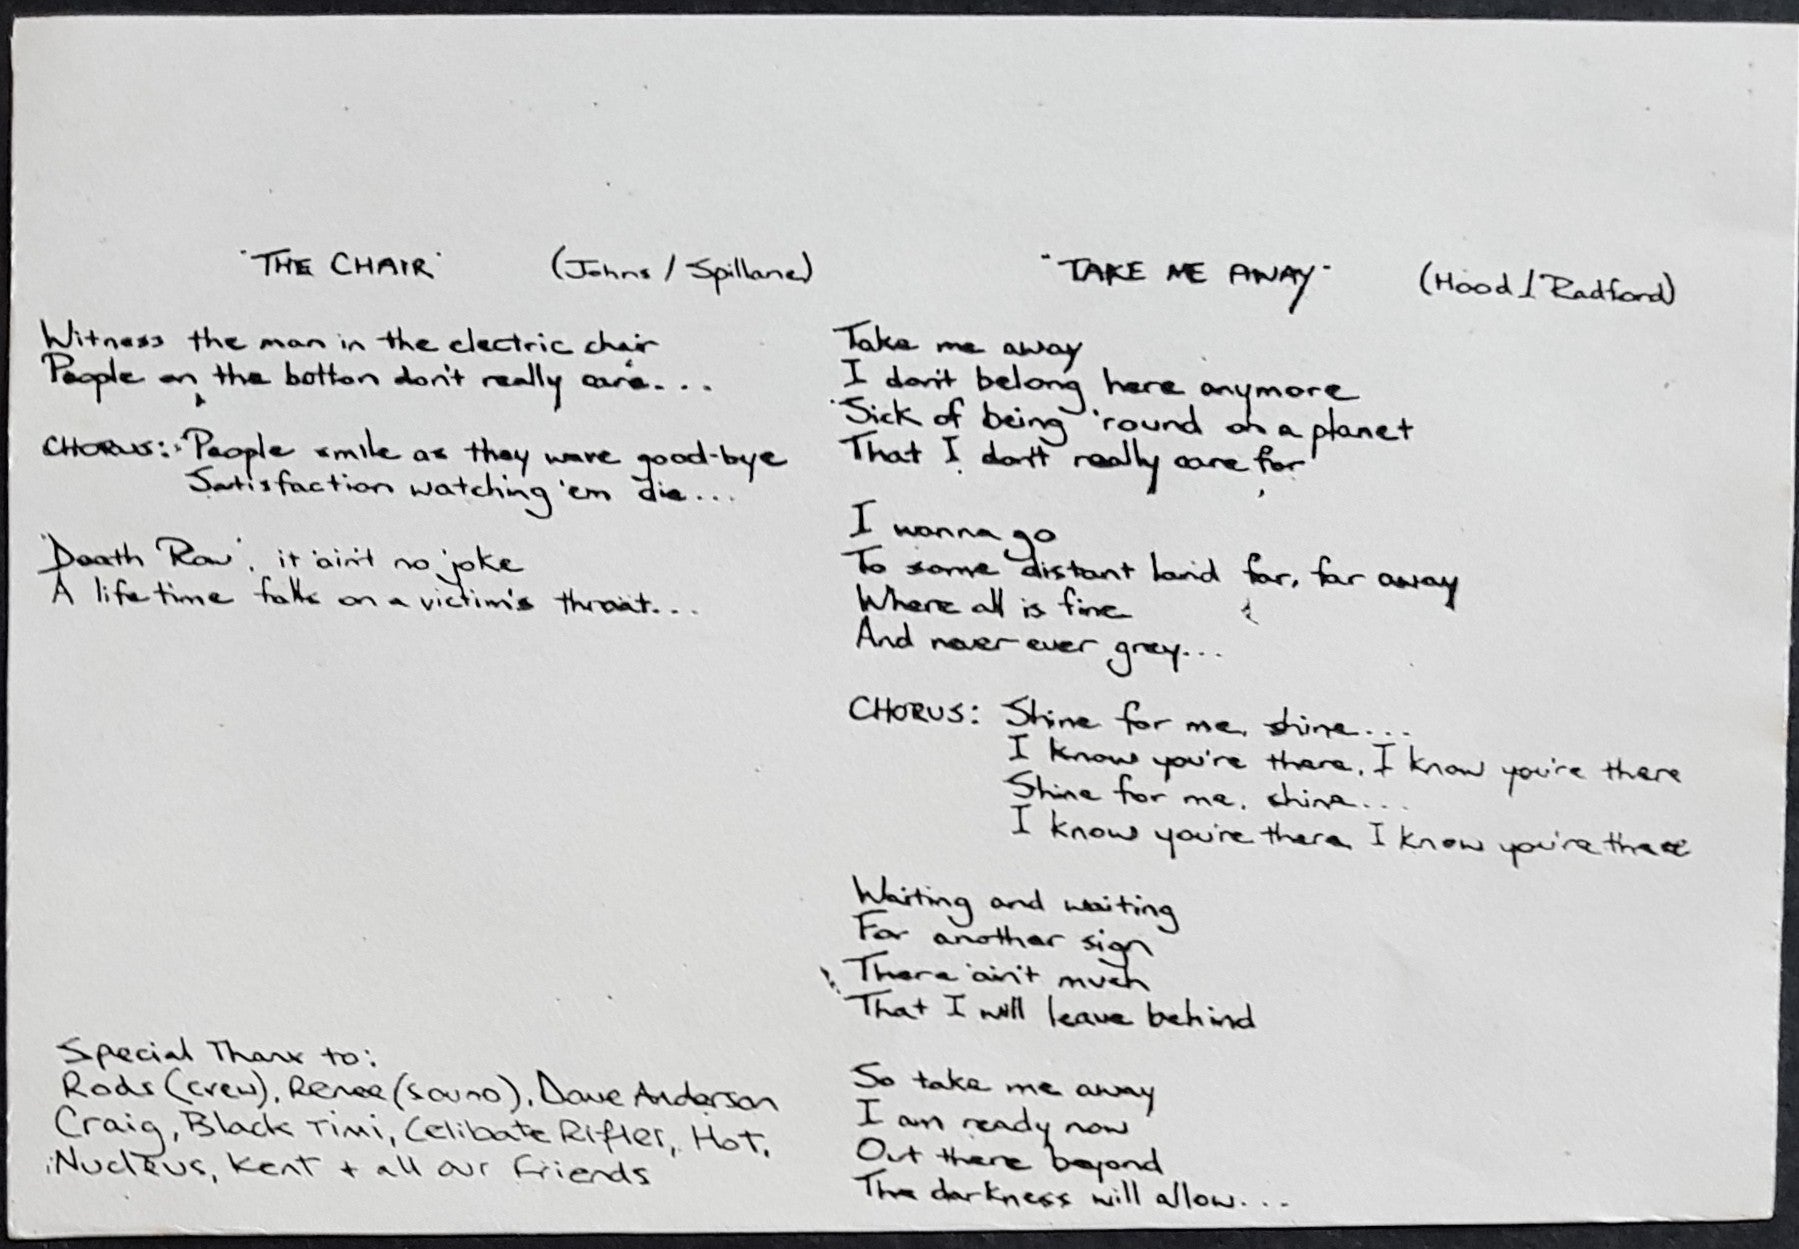 "THE CHAIR" (Johns / Spillane)
Witness the man in the electric chair
People on the botton don't really care...
CHORUS: People smile as they wave good-bye
Satisfaction watching 'em die...
'Death Row', it ain't no joke
A lifetime falls on a victim's throat...
Special Thanx to:
Rods (crew), Renee (sound), Dave Anderson
Craig, Black Timi, Celibate Rifles, Hot,
Nucleus, Kent + all our friends
"TAKE ME AWAY" (Hood / Radford)
Take me away
I don't belong here anymore
Sick of being 'round on a planet
That I don't really care for
I wanna go
To some distant land far, far away
Where all is fine
And never ever grey...
CHORUS: Shine for me, shine....
I know you're there, I know you're there
Shine for me, shine....
I know you're there I know you're there
Waiting and waiting
For another sign
There ain't much
That I will leave behind
So take me away
I am ready now
Out there beyond
The darkness will allow...